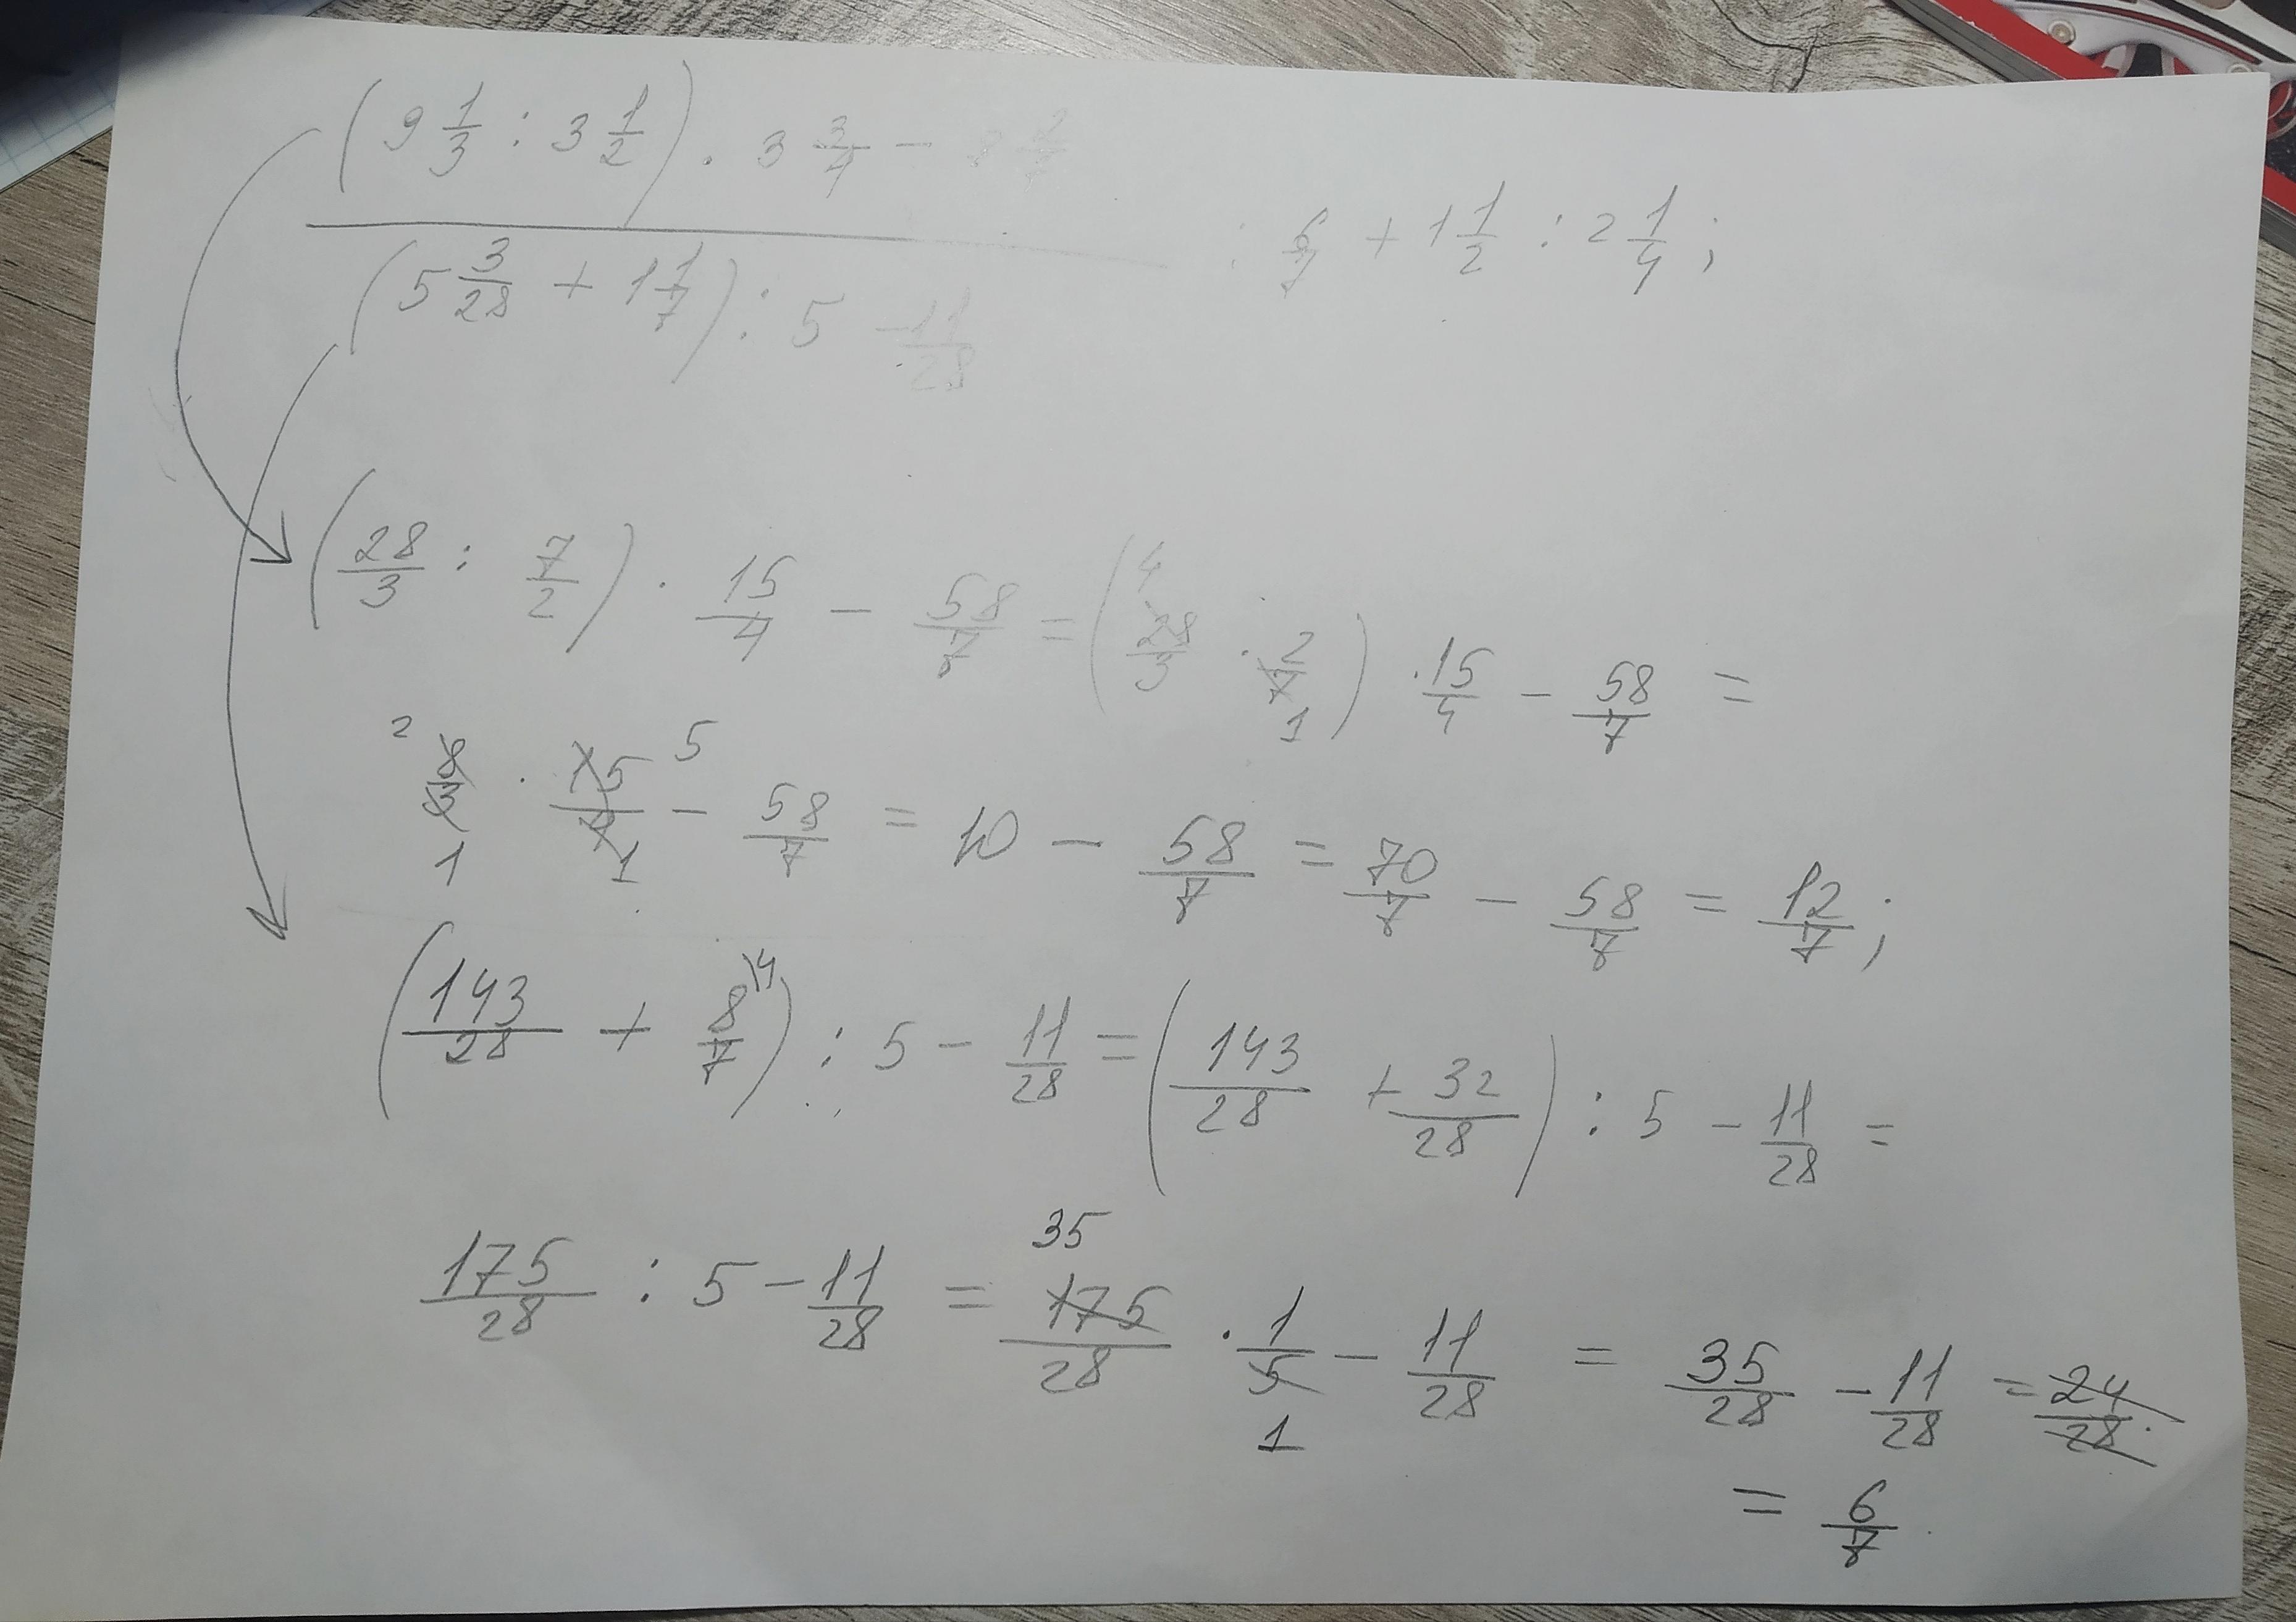 (9 1/3 : 3 1/2) · 3 3/4 - 8 2/7
(5 3/28 + 1 1/7) : 5 - 11/28
: 6/7 + 1 1/2 : 2 1/4 ;
(28/3 : 7/2) · 15/4 - 58/7 = (28/3 4 · 2/7 1) · 15/4 - 58/7 =
2 8/3 1 · 15/4 5 1 - 58/7 = 10 - 58/7 = 70/7 - 58/7 = 12/7 ;
(143/28 + 8/7 \4) : 5 - 11/28 = (143/28 + 32/28) : 5 - 11/28 =
175/28 : 5 - 11/28 = 35 175/28 · 1/5 1 - 11/28 = 35/28 - 11/28 = 24/28
= 6/7